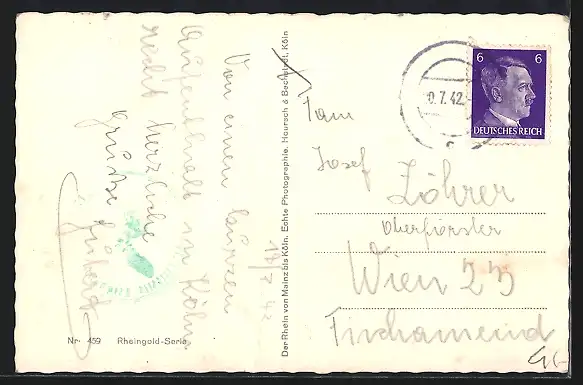 Von einen kurzen
Aufenthalt in Köln
recht herzliche
Grüße
17/7.42
Nr. 459 Rheingold-Serie
Der Rhein von Mainz bis Köln. Echte Photographie. Hoursch & Bechstedt, Köln
7.42.
6 6
DEUTSCHES REICH
Fam
Josef Löhrer
Oberförster
Wien 23
Fischamend